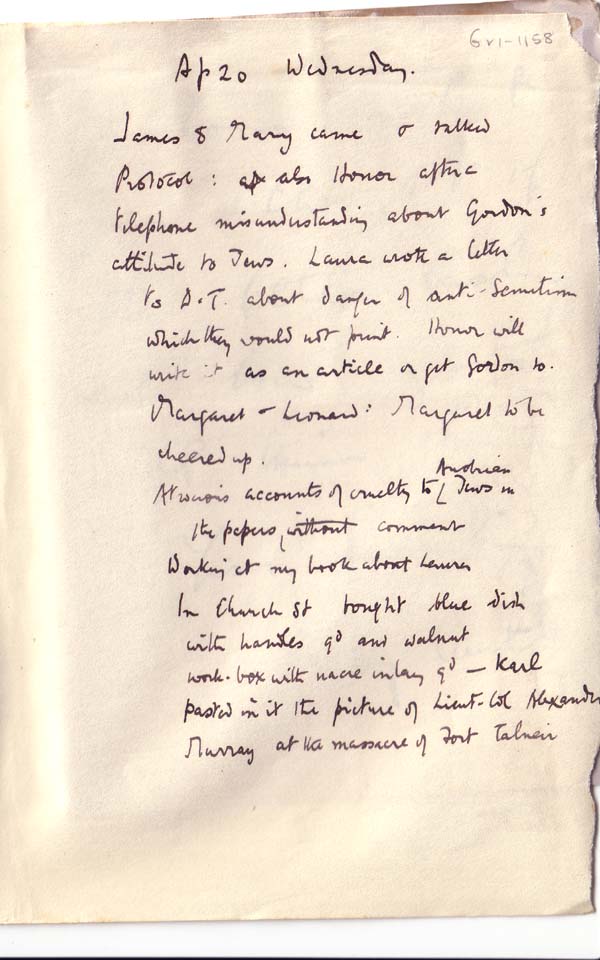 6v1-1158
Ap 20 Wednesday.
James & Mary came & talked
Protocol : also Honor after a
telephone misunderstanding about Gordon's
attitude to Jews. Laura wrote a letter
to D.T. about danger of anti-Semitism
which they would not print. Honor will
write it as an article or get Gordon to.
Margaret & Leonard: Margaret to be
cheered up.
Austrian
Atrocious accounts of cruelty to Jews in
the papers, without comment
Working at my book about Laura
In Church St bought blue dish
with handles 9d and walnut
work-box with nacre inlay 9d — Karl
pasted in it the picture of Lieut-Col Alexander
Murray at the massacre of Fort Talneir